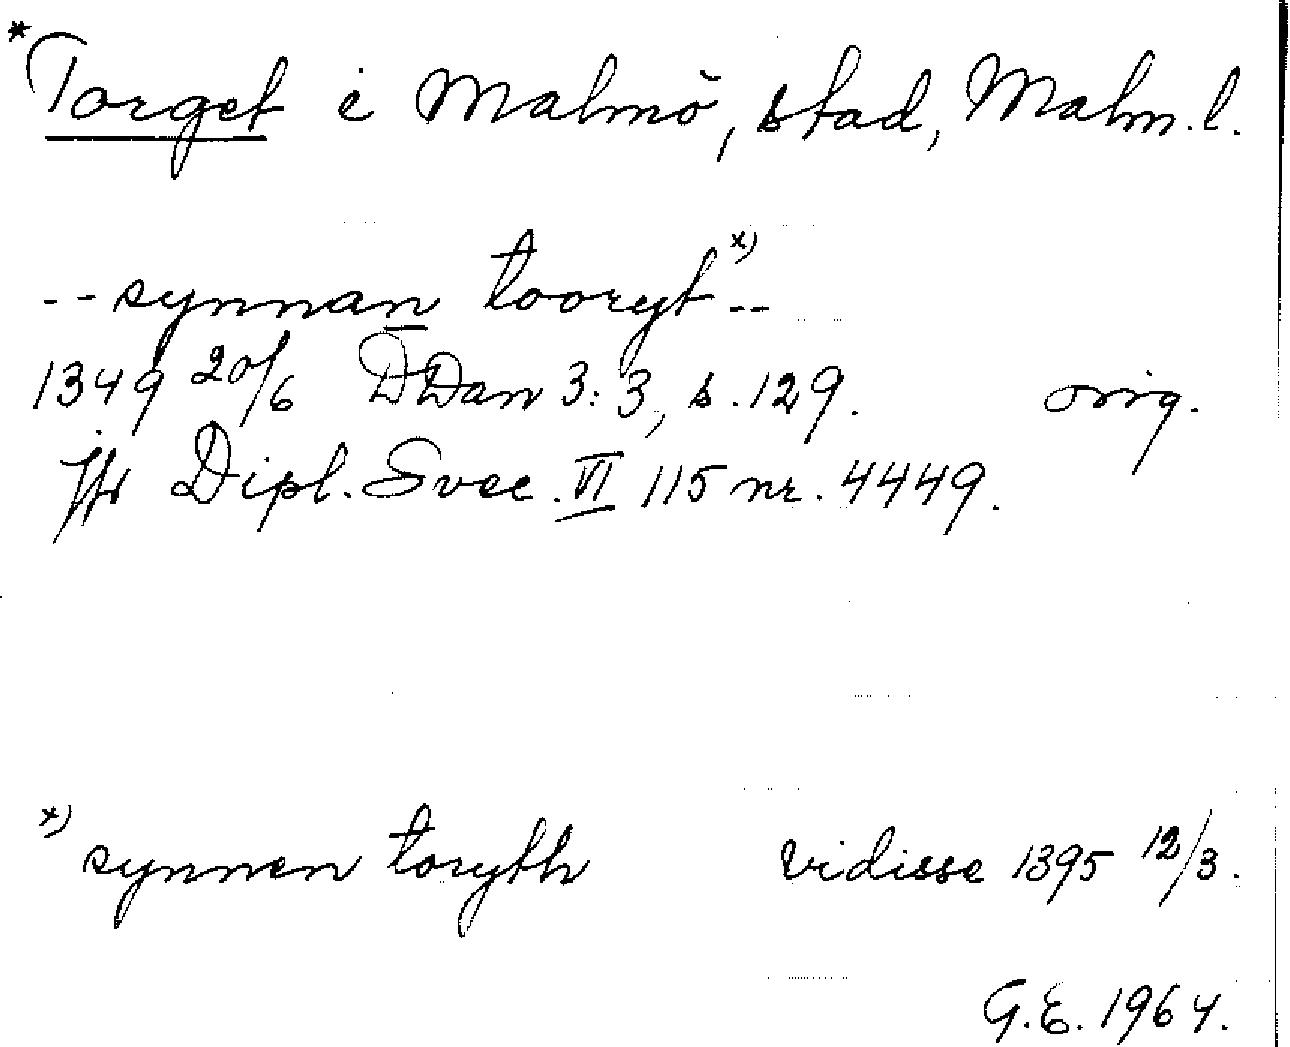 *Torget i Malmö, stad, Malm. l.
-- synnan tooryt x) --
1349 20/6 DDan 3:3, s. 129. orig.
Jfr Dipl. Svec. VI 115 nr. 4449.
x) synnen toryth vidisse 1395 12/3.
G.E. 1964.